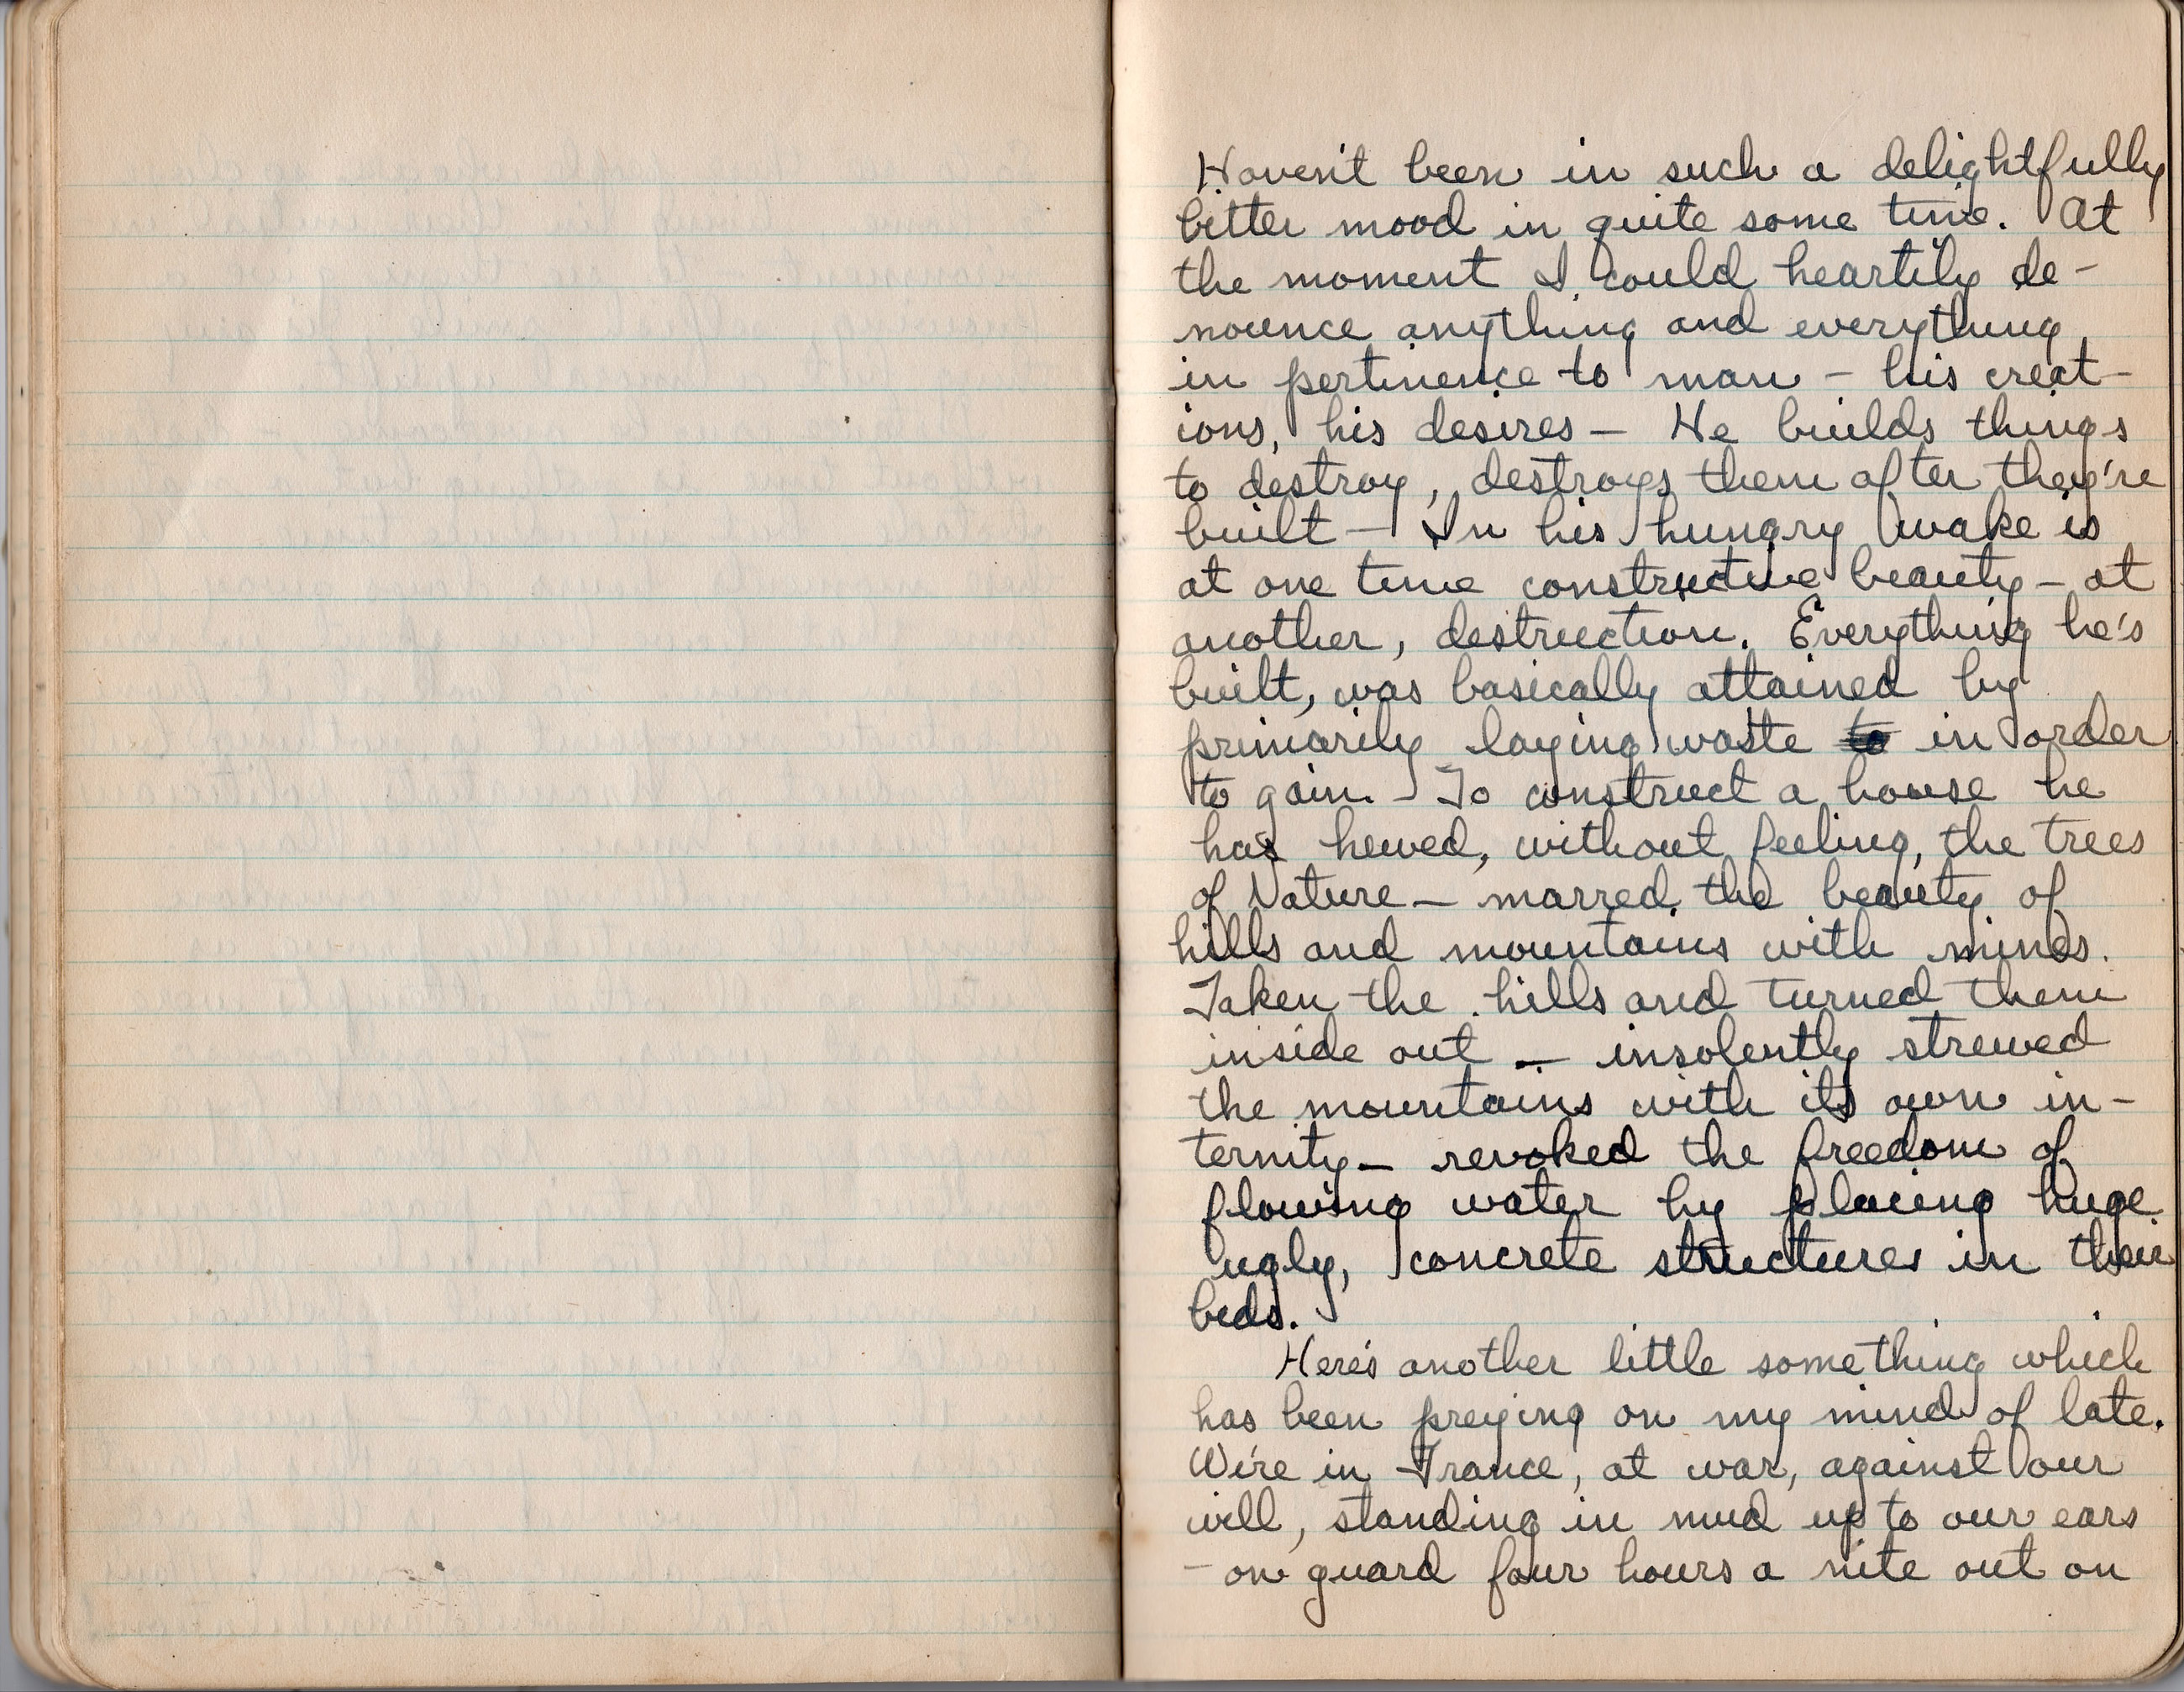 Haven't been in such a delightfully
bitter mood in quite some time. At
the moment I could heartily de-
nounce anything and everything
in pertinence to man - his creat-
ions, his desires - He builds things
to destroy, destroys them after they're
built - In his hungry wake is
at one time constructive beauty - at
another, destruction. Everything he's
built, was basically attained by
primarily laying waste to in order
to gain. - To construct a house he
has hewed, without feeling, the trees
of Nature - marred the beauty of
hills and mountains with mines.
Taken the hills and turned them
inside out - insolently strewed
the mountains with its own in-
ternity - revoked the freedom of
flowing water by placing huge
ugly, concrete structures in their
beds.
Here's another little something which
has been preying on my mind of late.
We're in France, at war, against our
will, standing in mud up to our ears
- on guard four hours a nite out on